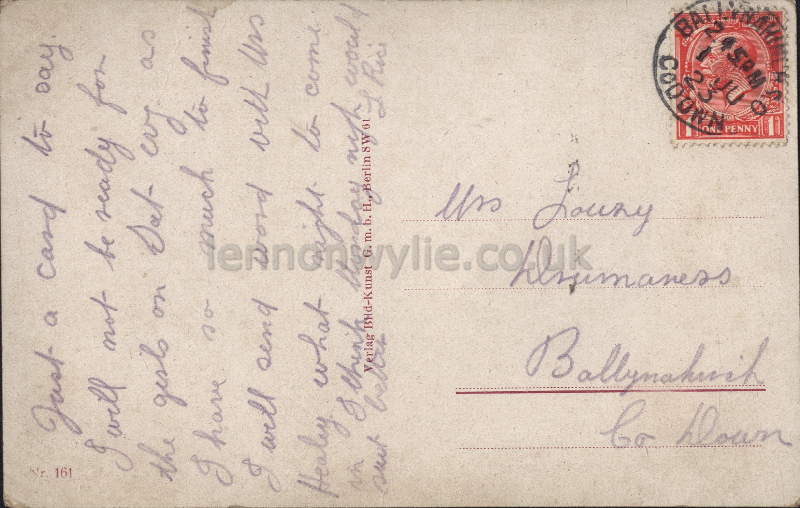 Just a card to say
I will not be ready for
the girls on Sat- evg as
I have so much to finish
I will send word with Mrs
Healey what night to come
I think Thursday night would
suit better
Nr. 161
Verlag Bild-Kunst G. m. b. H., Berlin SW 61
Mrs Loury
Drumaness
Ballynahinch
Co Down
BALLYNAHINCH
CO. DOWN
45 PM
JU
23
ONE PENNY
lennonwylie.co.uk